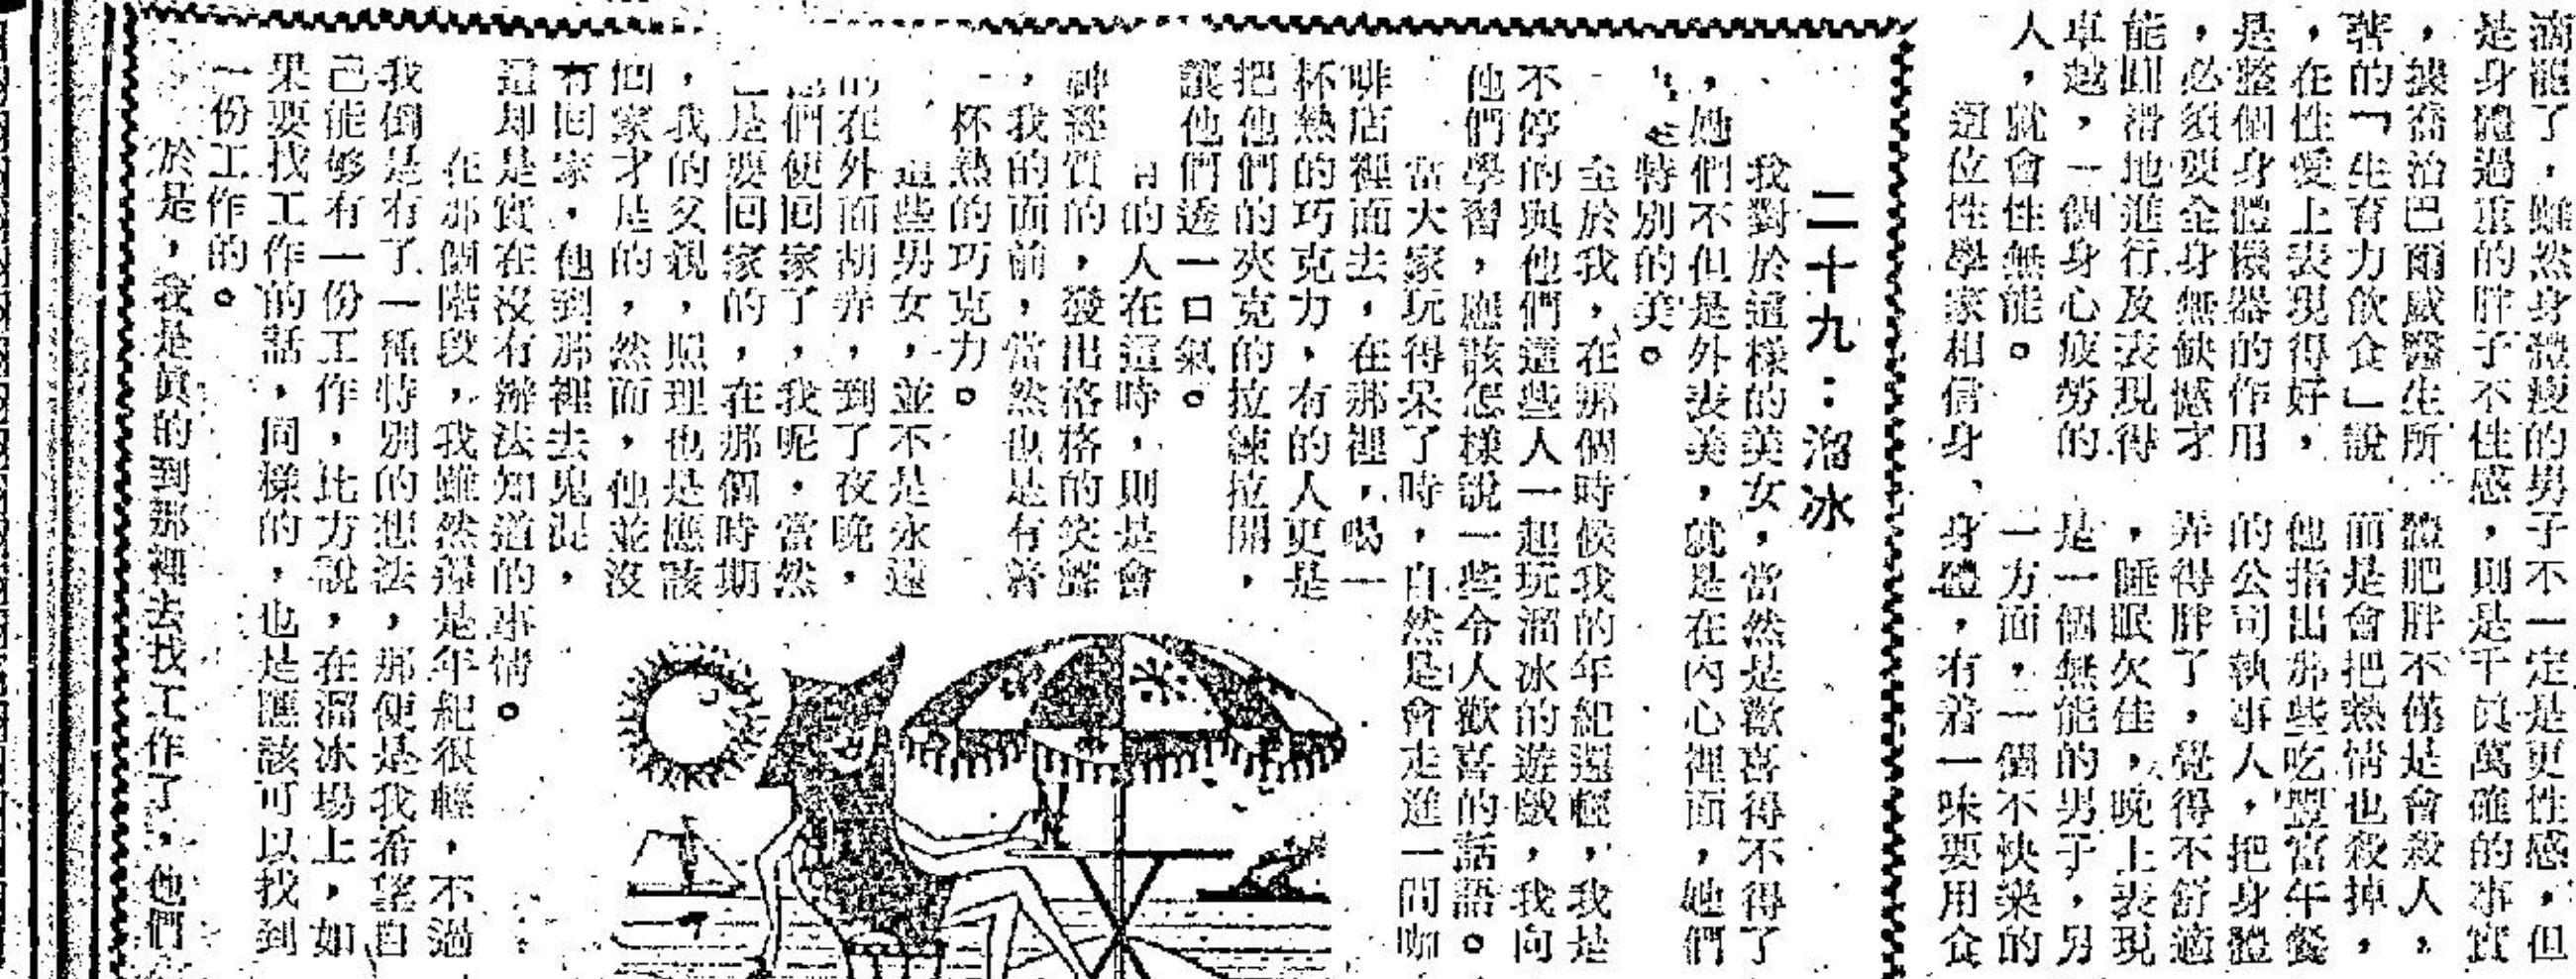 滴龍了，雖然身體瘦的男子不一定是更性感，但
是身體過重的胖子不性感，則是千眞萬確的事實
，據喬治巴爾威醫生所
著的「生育力飲食」說
，在性愛上表現得好，
是整個身體機器的作用
，必須要全身無缺憾才
能圓滑地進行及表現得
卓越，一個身心疲勞的
人，就會性無能。
這位性學家相信身、
體肥胖不僅是會殺人，
而是會把熱情也殺掉，
他指出那些吃豐富午餐
的公司執事人，把身體
弄得胖了，覺得不舒適
，睡眠欠佳，晚上表現
是一個無能的男子，另
一方面，一個不快樂的
身體，有着一味要用食
二十九：溜冰
我對於這樣的美女，當然是歡喜得不得了
，她們不但是外表美，就是在內心裡面，她們
特別的美。
至於我，在那個時候我的年紀還輕，我是
不停的與他們這些人一起玩溜冰的遊戲，我向
他們學習，應該怎樣說一些令人歡喜的話語。
當大家玩得呆了時，自然是會走進一間咖
啡店裡面去，在那裡，喝一
杯熱的巧克力，有的人更是
把他們的夾克的拉練拉開，
讓他們透一口氣。
的人在這時，則是會
神經質的，發出格格的笑聲
，我的面前，當然也是有着
一杯熱的巧克力。
這些男女，並不是永遠
的在外面胡弄，到了夜晚，
他們便回家了，我呢，當然
是要回家的，在那個時期
，我的父親，照理也是應該
回家才是的，然而，他並沒
有回家，他到那裡去鬼混，
這却是實在沒有辦法知道的事情。
在那個階段，我雖然還是年紀很輕，不過
我倒是有了一種特別的想法，那便是我希望自
己能够有一份工作，比方說，在溜冰場上，如
果要找工作的話，同樣的，也是應該可以找到
一份工作的。
於是，我是眞的到那裡去找工作了，他們